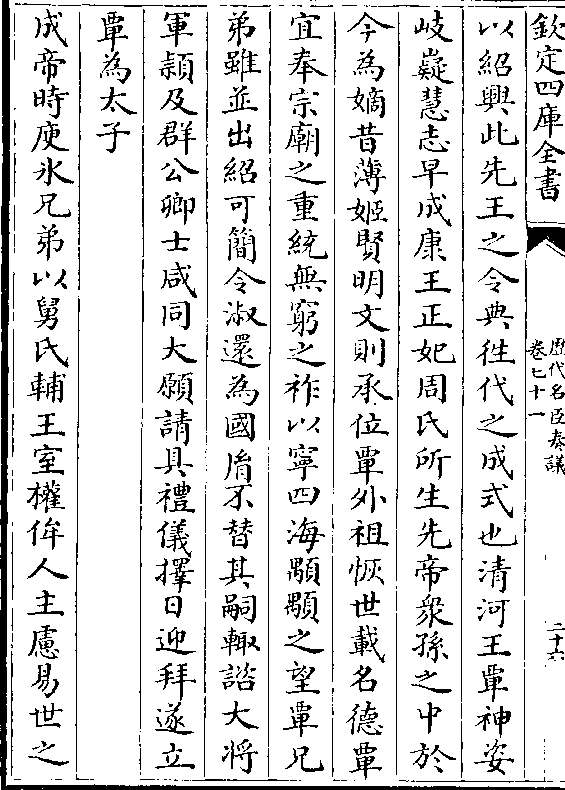 欽定四庫全書
歷代名臣奏議
卷七十一
二十六
以紹興此先王之令典徃代之成式也清河王覃神姿
岐嶷慧志早成康王正妃周氏所生先帝衆孫之中於
今為嫡昔薄姬賢明文則承位覃外祖恢世載名德覃
宜奉宗廟之重統無窮之祚以寧四海顒顒之望覃兄
弟雖並出紹可簡令淑還為國胤不替其嗣輙諮大將
軍頴及群公卿士咸同大願請具禮儀擇日迎拜遂立
覃為太子
成帝時庾氷兄弟以舅氏輔王室權侔人主慮易世之